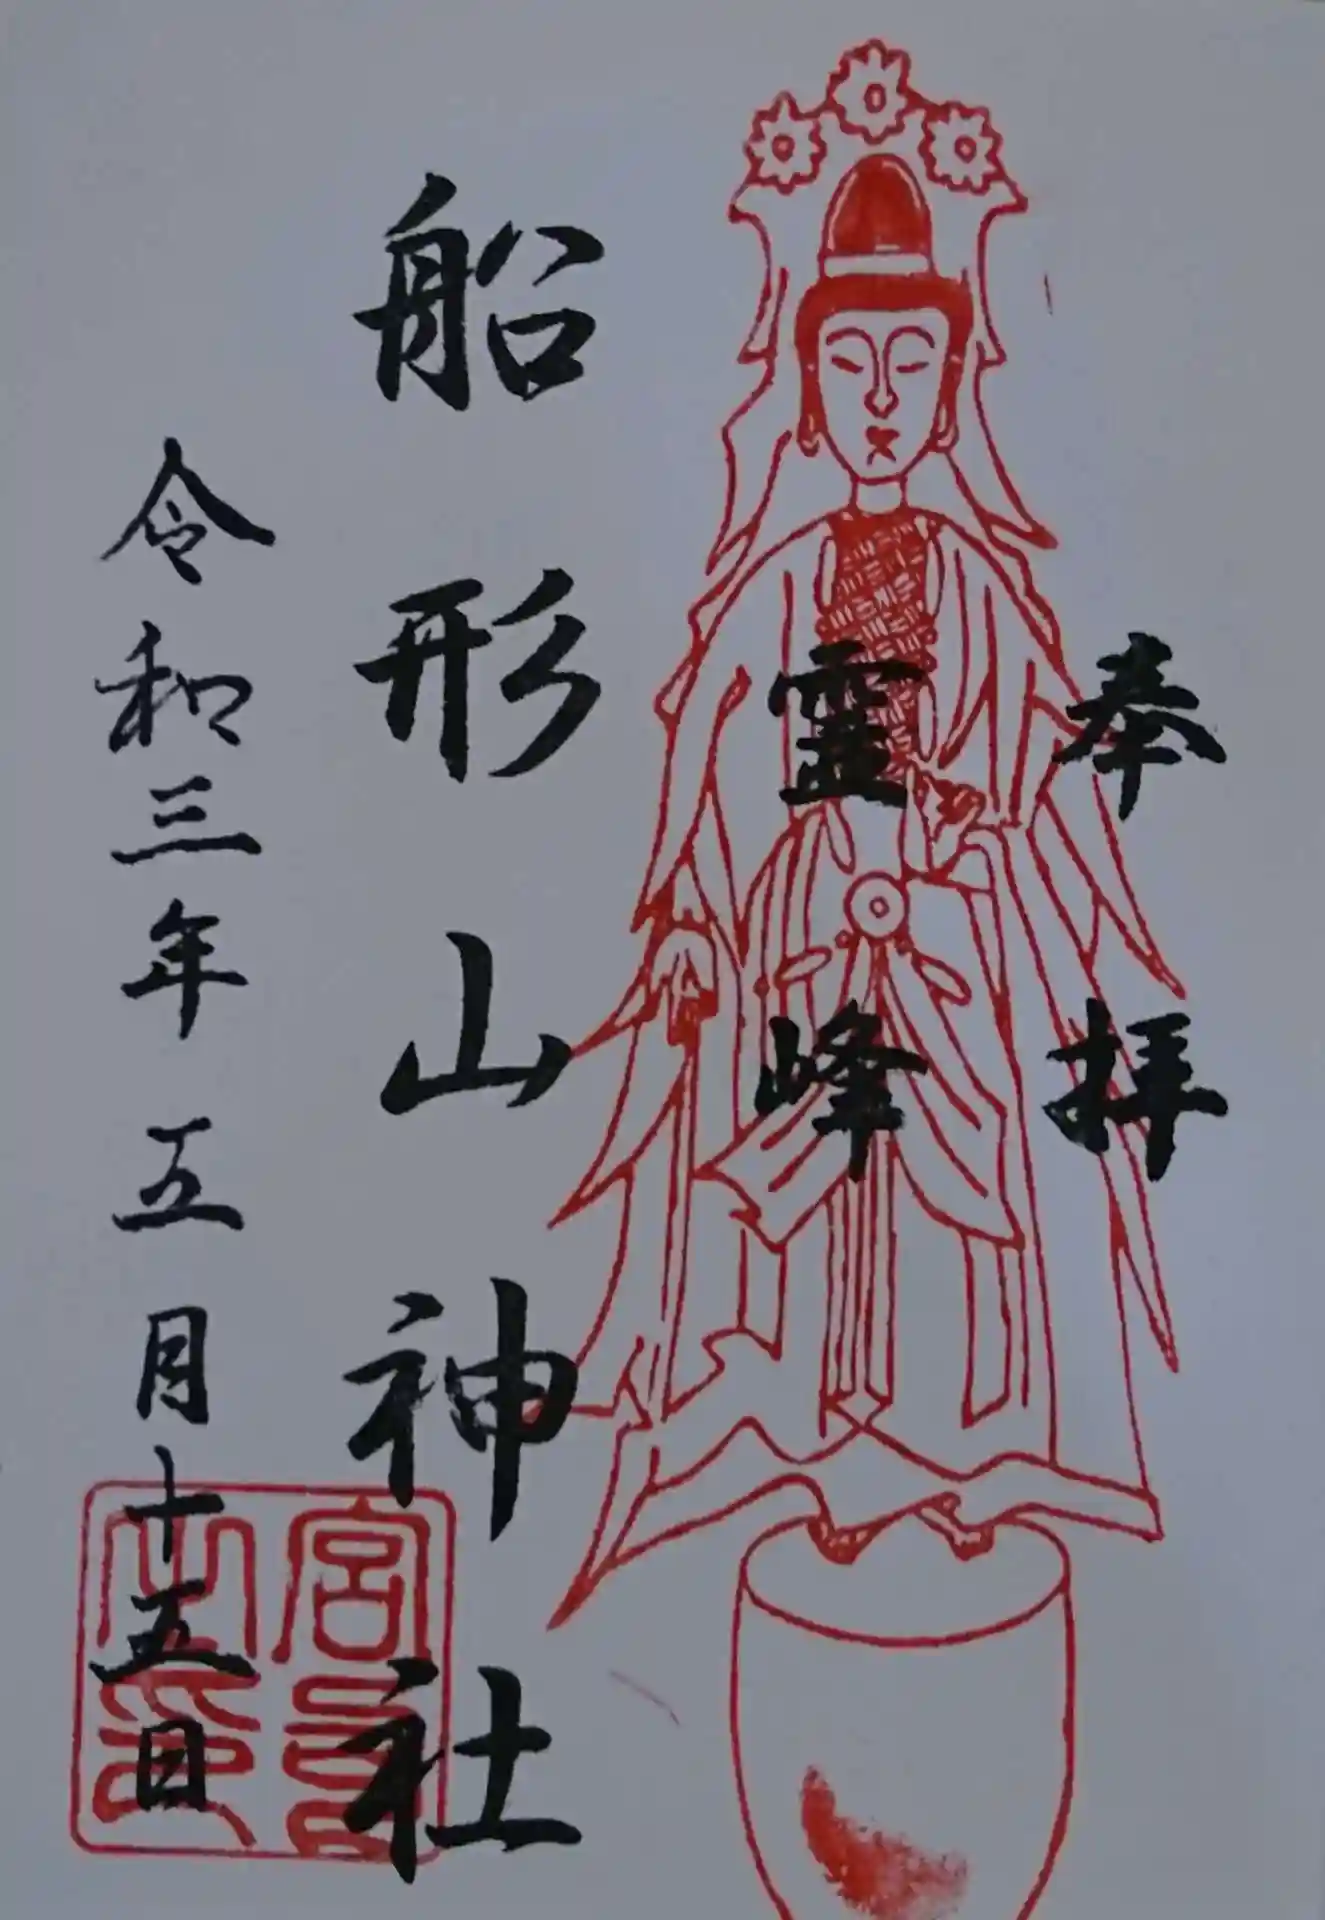 奉拝
霊峰
船形山神社
令和三年五月十五日
宮司之印